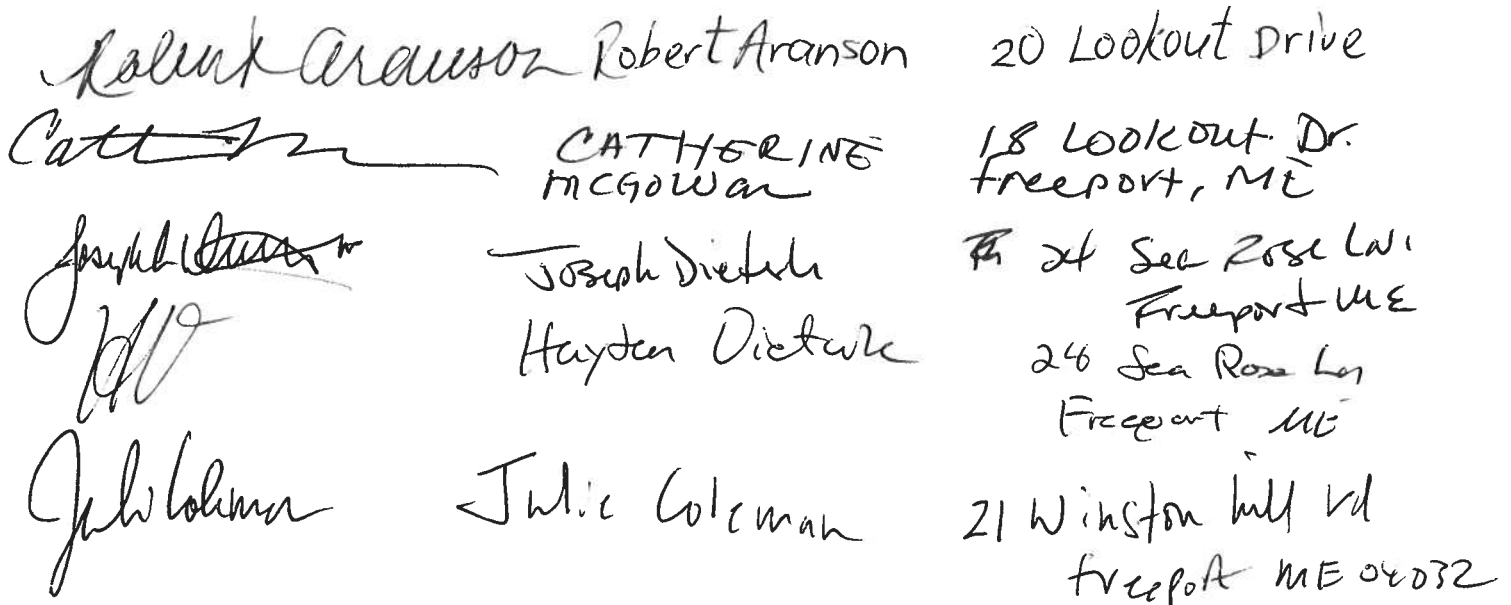 Robert Aranson Robert Aranson 20 Lookout Drive
CATHERINE 18 Lookout Dr.
MCGOWan Freeport, ME
Joseph Joseph Dieterle 24 Sea Rose Ln.
Freeport ME
Hayden Dieterle
Sea Rose Ln
Freeport ME
Julie Coleman Julie Coleman 21 Winston hill rd
freeport ME 04032